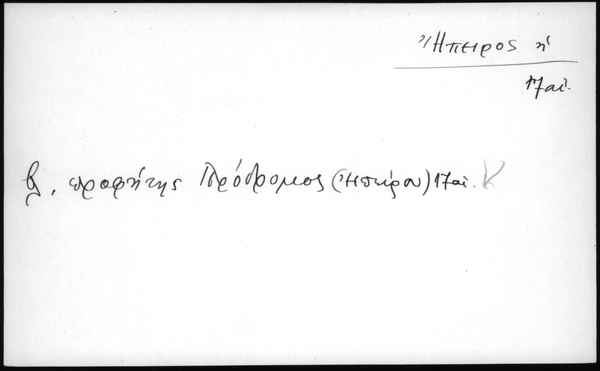 Ἤπειρος ἡ
17 αἰ.
βλ. προφήτης Πρόδρομος (Ἠπείρου) 17 αἰ.